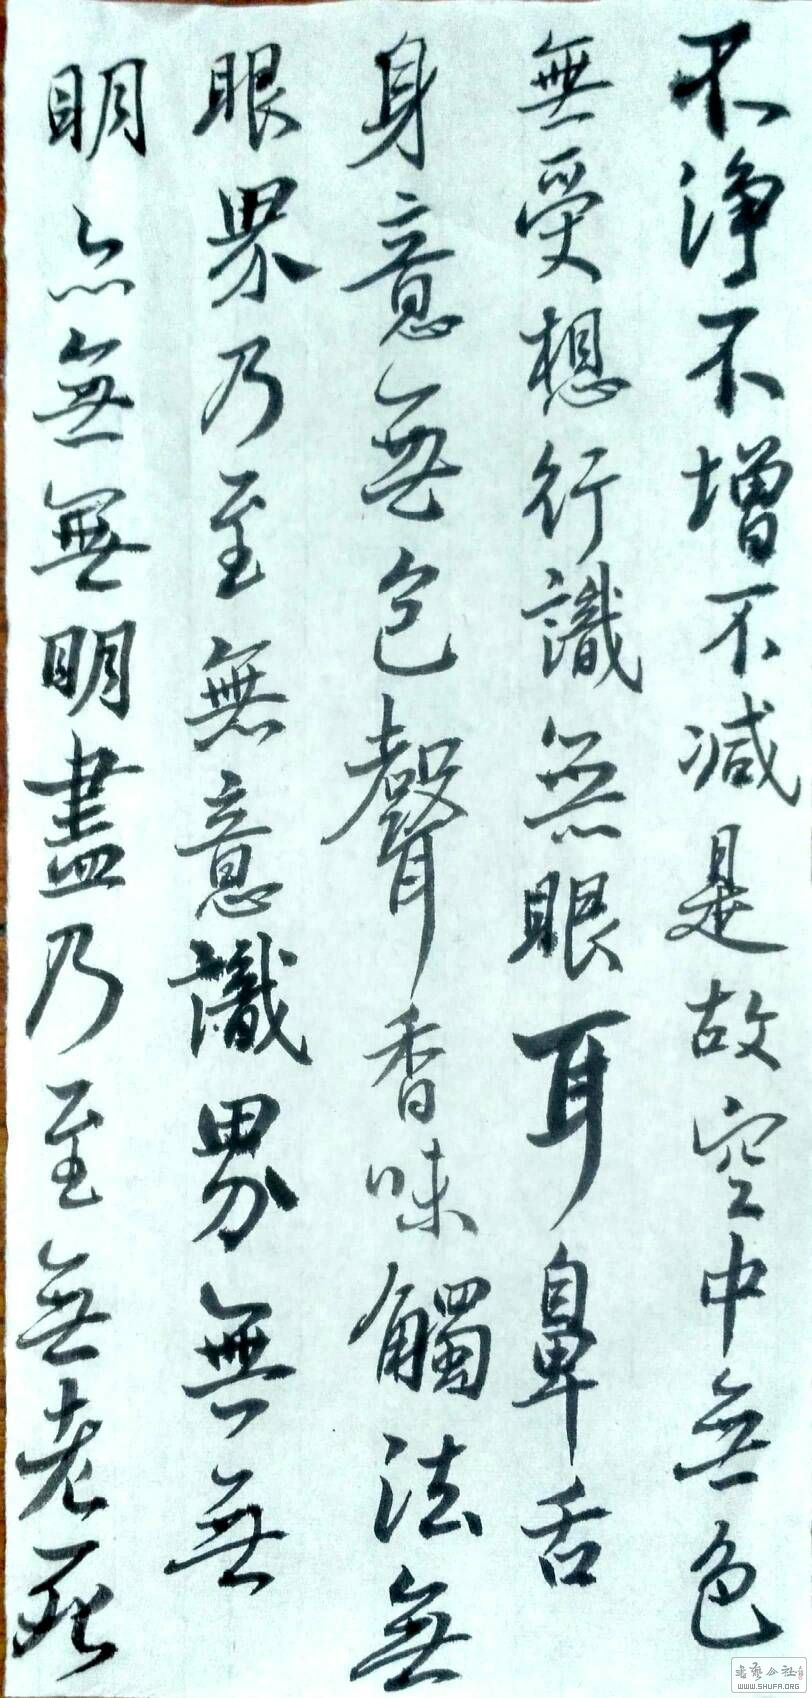 不淨不增不减是故空中無色
無受想行識無眼耳鼻舌
身意無色聲香味觸法無
眼界乃至無意識界無無
明亦無無明盡乃至無老死
WWW.SHUFA.ORG